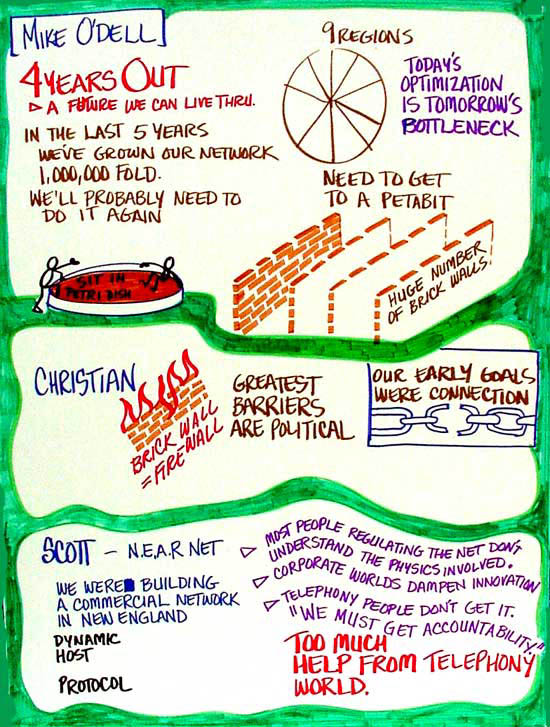 MIKE O'DELL
4 YEARS OUT
▷ A FUTURE WE CAN LIVE THRU.
IN THE LAST 5 YEARS
WE'VE GROWN OUR NETWORK
1,000,000 FOLD.
WE'LL PROBABLY NEED TO
DO IT AGAIN
SIT IN
PETRI DISH
9 REGIONS
TODAY'S
OPTIMIZATION
IS TOMORROW'S
BOTTLENECK
NEED TO GET
TO A PETABIT
HUGE NUMBER
OF BRICK WALLS
CHRISTIAN
BRICK WALL
= FIREWALL
GREATEST
BARRIERS
ARE POLITICAL
OUR EARLY GOALS
WERE CONNECTION
SCOTT – N.E.A.R NET
WE WERE BUILDING
A COMMERCIAL NETWORK
IN NEW ENGLAND
DYNAMIC
HOST
PROTOCOL
▷ MOST PEOPLE REGULATING THE NET DON'T
UNDERSTAND THE PHYSICS INVOLVED.
▷ CORPORATE WORLDS DAMPEN INNOVATION
▷ TELEPHONY PEOPLE DON'T GET IT.
"WE MUST GET ACCOUNTABILITY."
TOO MUCH
HELP FROM TELEPHONY
WORLD.